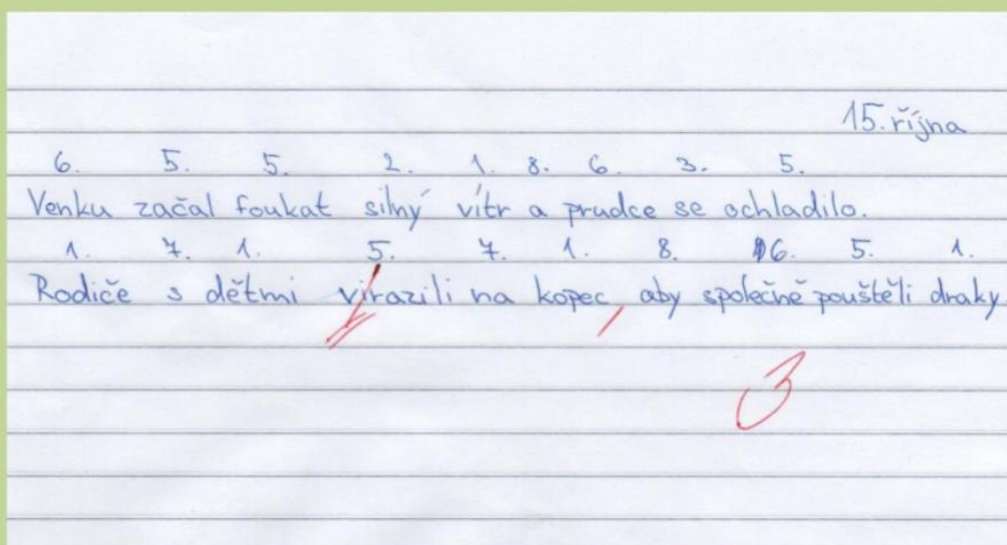 15. října
6. 5. 5. 2. 1. 8. 6. 3. 5.
Venku začal foukat silný vítr a prudce se ochladilo.
1. 7. 1. 5. 7. 1. 8. 6. 5. 1.
Rodiče s dětmi virazili na kopec, aby společně pouštěli draky
3